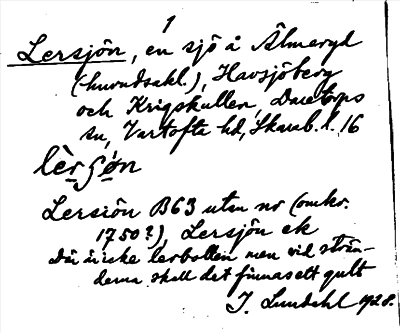 1
Lersjön, en sjö å Älmeryd
(huvudsakl.), Havsjöberg
och Krigskullen, Daretorps
sn, Vartofta hd, Skarab. l. 16
lèrʃön
Lersiön B63 utan nr (omkr.
1750?), Lersjön ek
Där är icke lerbotten men vid strän-
derna skall det finnas ett gult
J. Lundahl 1928.